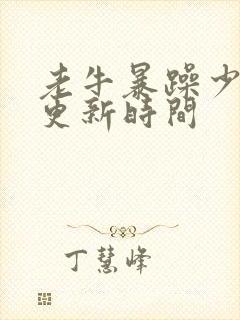 老牛暴躁少
更新時間
丁慧峰